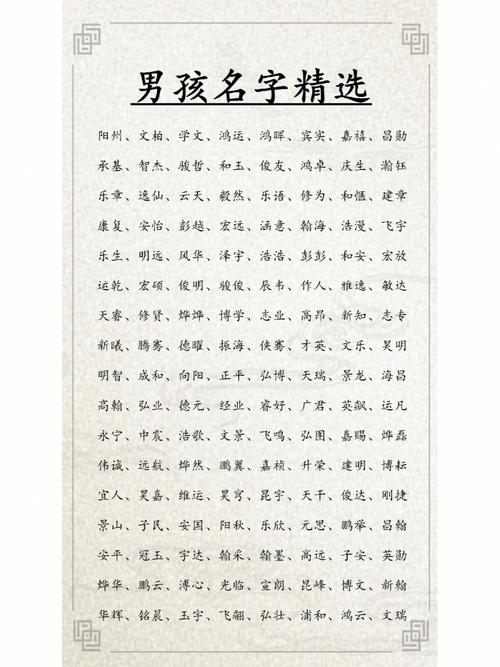 男孩名字精选
阳州、文柏、学文、鸿运、鸿晖、宾实、嘉禧、昌勋
承基、智杰、骏哲、和玉、俊友、鸿卓、庆生、瀚钰
乐章、逸仙、云天、毅然、乐语、修为、和惬、建章
康复、安怡、彭越、宏远、涵意、翰海、浩漫、飞宇
乐生、明远、风华、泽宇、浩浩、彭彭、和安、宏放
运乾、宏硕、俊明、骏俊、辰韦、作人、雅逸、敏达
天睿、修贤、烨烨、博学、志业、高昂、新知、志专
新曦、腾骞、德曜、振海、侠骞、才英、文乐、昊明
明智、成和、向阳、正平、弘博、天瑞、景龙、海昌
高翰、弘业、德元、经业、睿好、广君、英飙、运凡
永宁、中震、浩歌、文景、飞鸣、弘图、嘉赐、烨磊
伟诚、远航、烨然、鹏翼、嘉祯、升荣、建明、博耘
宜人、昊嘉、维运、昊穹、昆宇、天干、俊达、刚捷
景山、子民、安国、阳秋、乐欣、元思、鹏举、昌翰
安平、冠玉、宇达、翰采、翰墨、高远、子安、英勋
烨华、鹏云、溥心、光临、宣朗、昆峰、博文、新翰
华辉、铭晨、玉宇、飞翮、弘壮、浦和、鸿云、文瑞